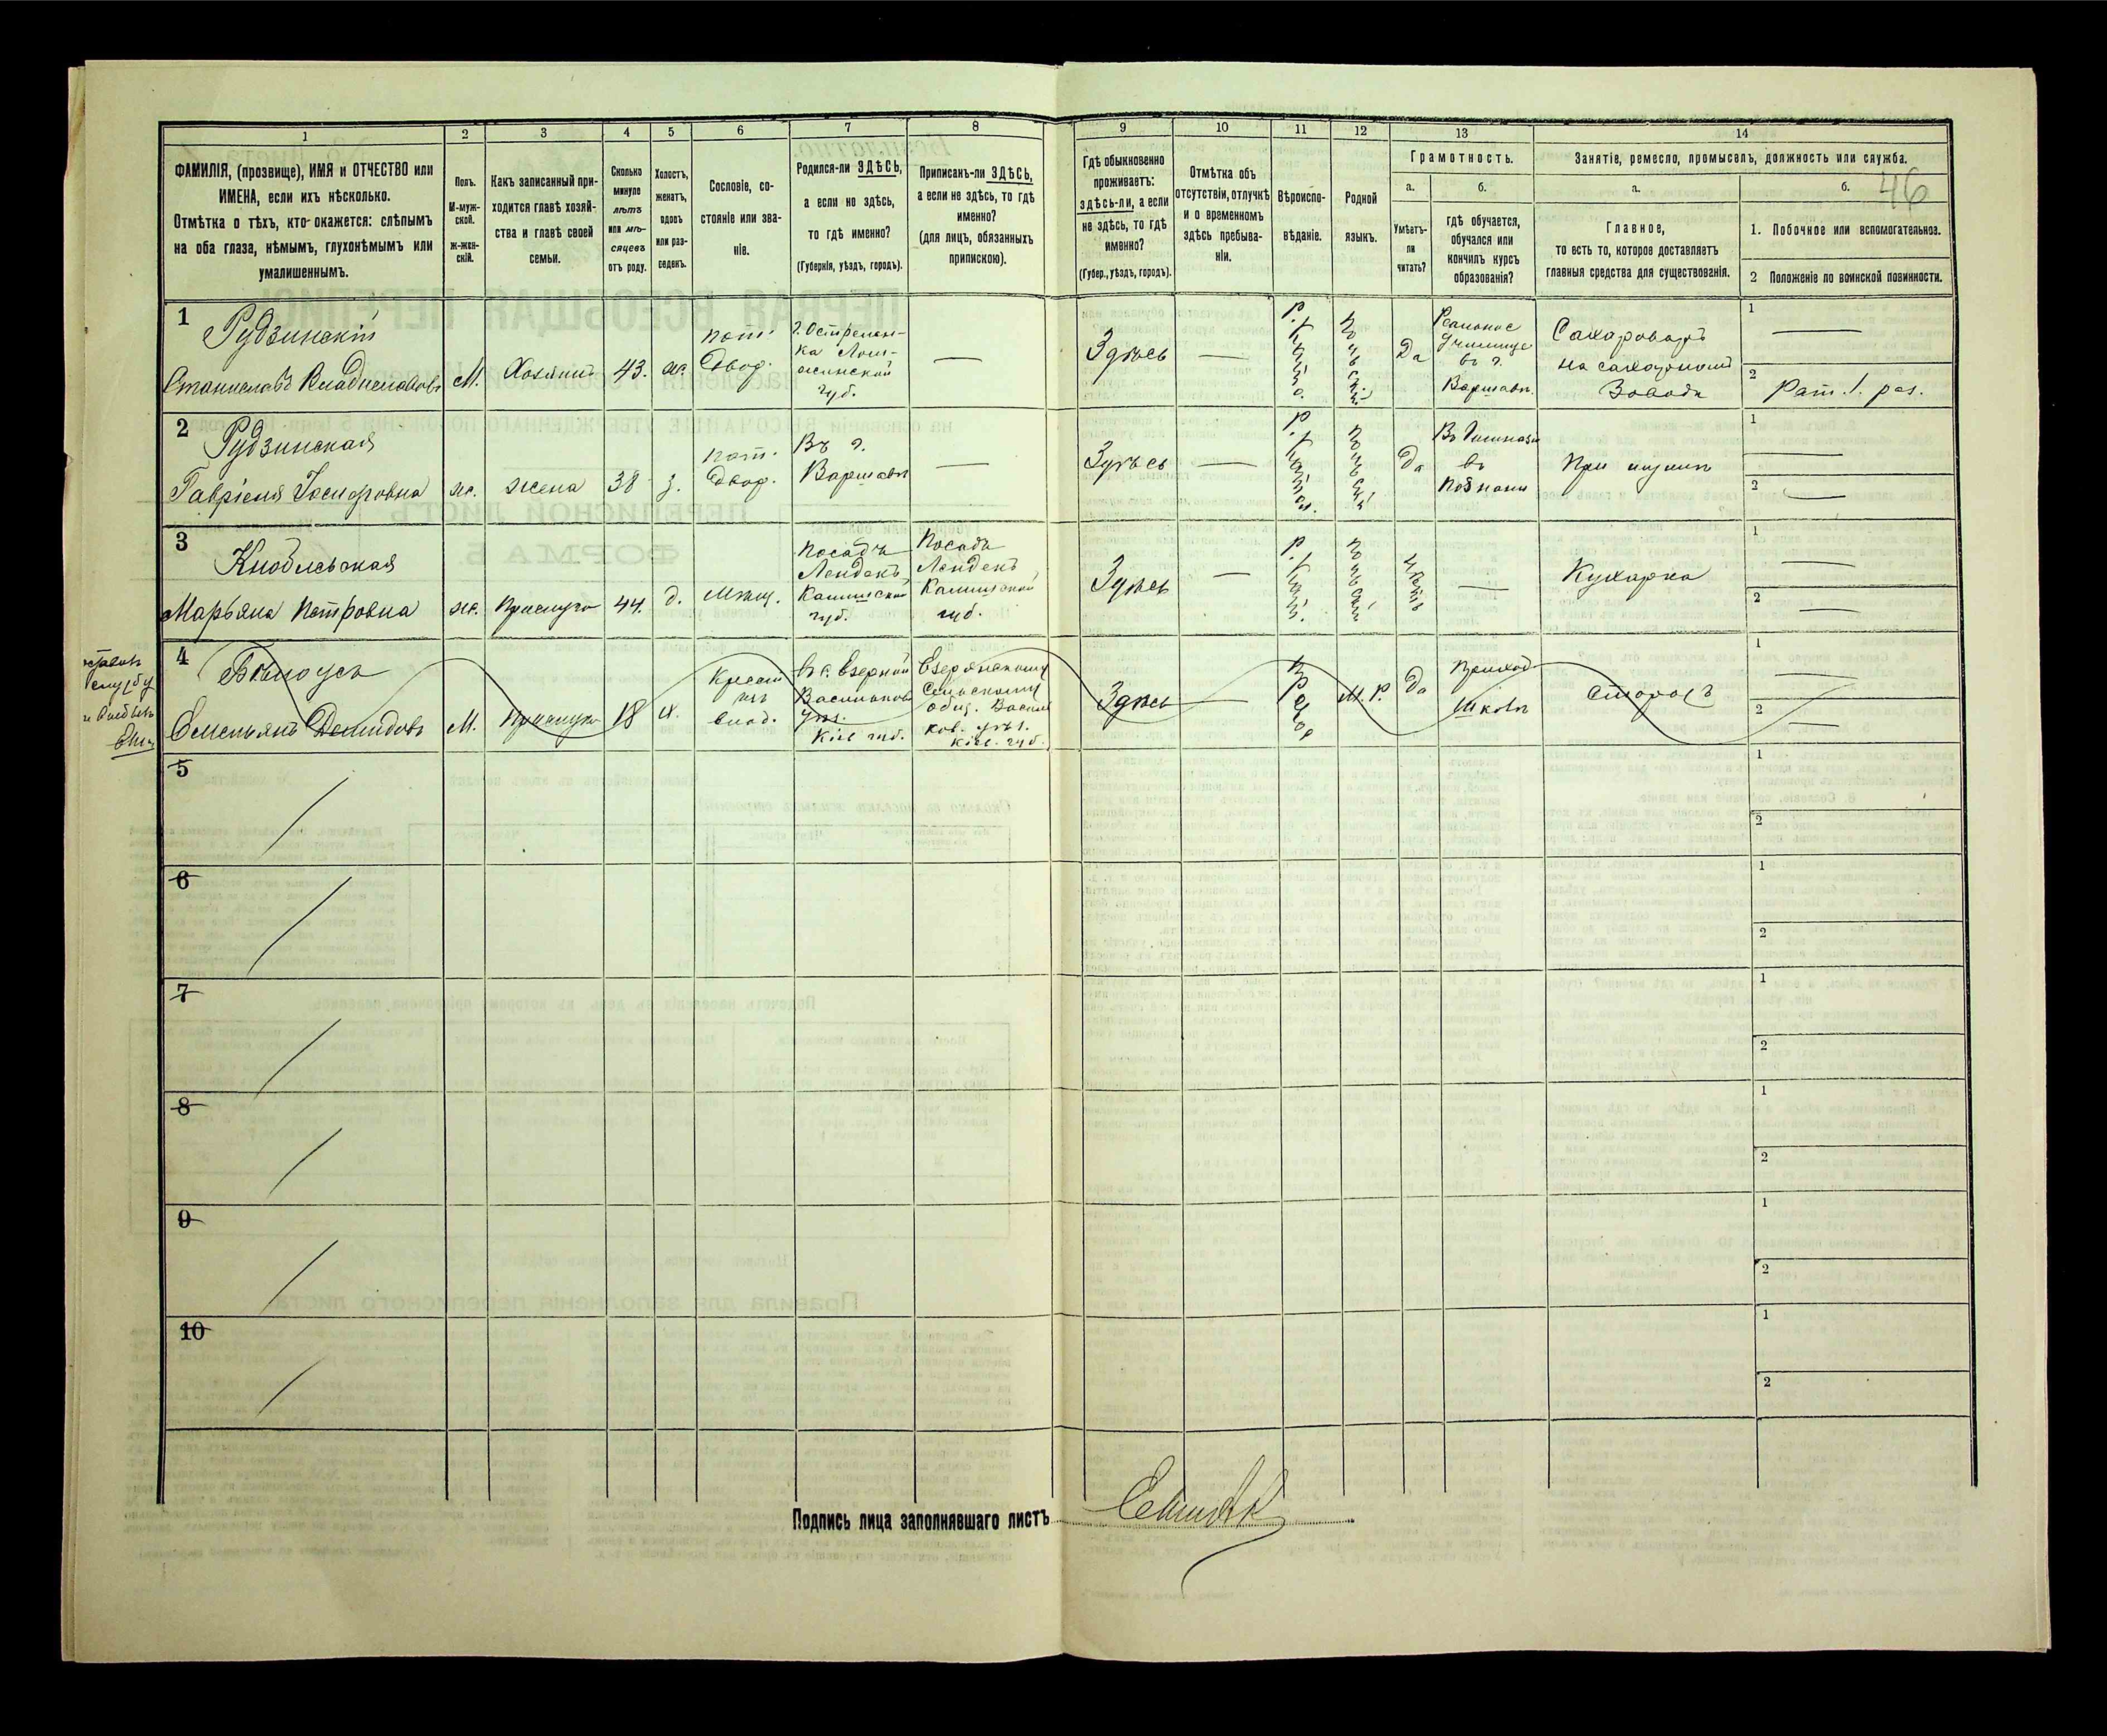 46
1
2
3
4
5
6
7
8
9
10
11
12
13
14
ФАМИЛІЯ, (прозвище), ИМЯ и ОТЧЕСТВО или
ИМЕНА, если ихъ нѣсколько.
Отмѣтка о тѣхъ, кто окажется: слѣпымъ
на оба глаза, нѣмымъ, глухонѣмымъ или
умалишеннымъ.
Полъ.
М-муж-
ской.
ж-жен-
скій.
Какъ записанный при-
ходится главѣ хозяй-
ства и главѣ своей
семьи.
Сколько
минуло
лѣтъ
или мѣ-
сяцевъ
отъ роду.
Холостъ,
женатъ,
вдовъ
или раз-
веденъ.
Сословіе, со-
стояніе или зва-
ніе.
Родился-ли ЗДѢСЬ,
а если не здѣсь,
то гдѣ именно?
(Губернія, уѣздъ, городъ).
Приписанъ-ли ЗДѢСЬ,
а если не здѣсь, то гдѣ
именно?
(для лицъ, обязанныхъ
припискою).
Гдѣ обыкновенно
проживаетъ:
здѣсь-ли, а если
не здѣсь, то гдѣ
именно?
(Губер., уѣздъ, городъ).
Отмѣтка объ
отсутствіи, отлучкѣ
и о временномъ
здѣсь пребыва-
ніи.
Вѣроиспо-
вѣданіе.
Родной
языкъ.
Грамотность.
а.
Умѣетъ-
ли
читать?
б.
гдѣ обучается,
обучался или
кончилъ курсъ
образованія?
Занятіе, ремесло, промыселъ, должность или служба.
а.
Главное,
то есть то, которое доставляетъ
главныя средства для существованія.
б.
1. Побочное или вспомогательное.
2 Положеніе по воинской повинности.
1
Рудзинскій
Станиславъ Владиславовъ
М.
Хозяинъ
43.
ж.
пот.
Двор.
г. Остролен-
ка Лом-
жинской
губ.
—
Здѣсь
—
Да
Реальное
училище
въ г.
Варшавѣ.
Сахароваръ
на сахарномъ
Заводѣ
1
—
2
Рат. 1. раз.
2
Рудзинская
Габріеля Іосифовна
ж.
жена
38
з.
пот.
Двор.
Въ г.
Варшавѣ
—
Здѣсь
—
Да
Въ Гимназіи
въ
Познани
При мужѣ
1
—
2
—
3
Марьяна Петровна
ж.
Прислуга
44.
д.
Мѣщ.
Посадъ
Лендекъ
Калишской
губ.
Посадъ
Лендекъ
Калишской
губ.
Здѣсь
—
—
Кухарка
1
—
2
—
4
Бѣлоусъ
Емельянъ Демидовъ
М.
Прислуга
18
х.
Здѣсь
—
М. Р.
Да
Приход
Школѣ
Сторожъ
1
—
2
—
5
1
2
6
1
2
7
1
2
8
1
2
9
1
2
10
1
2
Подпись лица заполнявшаго листъ